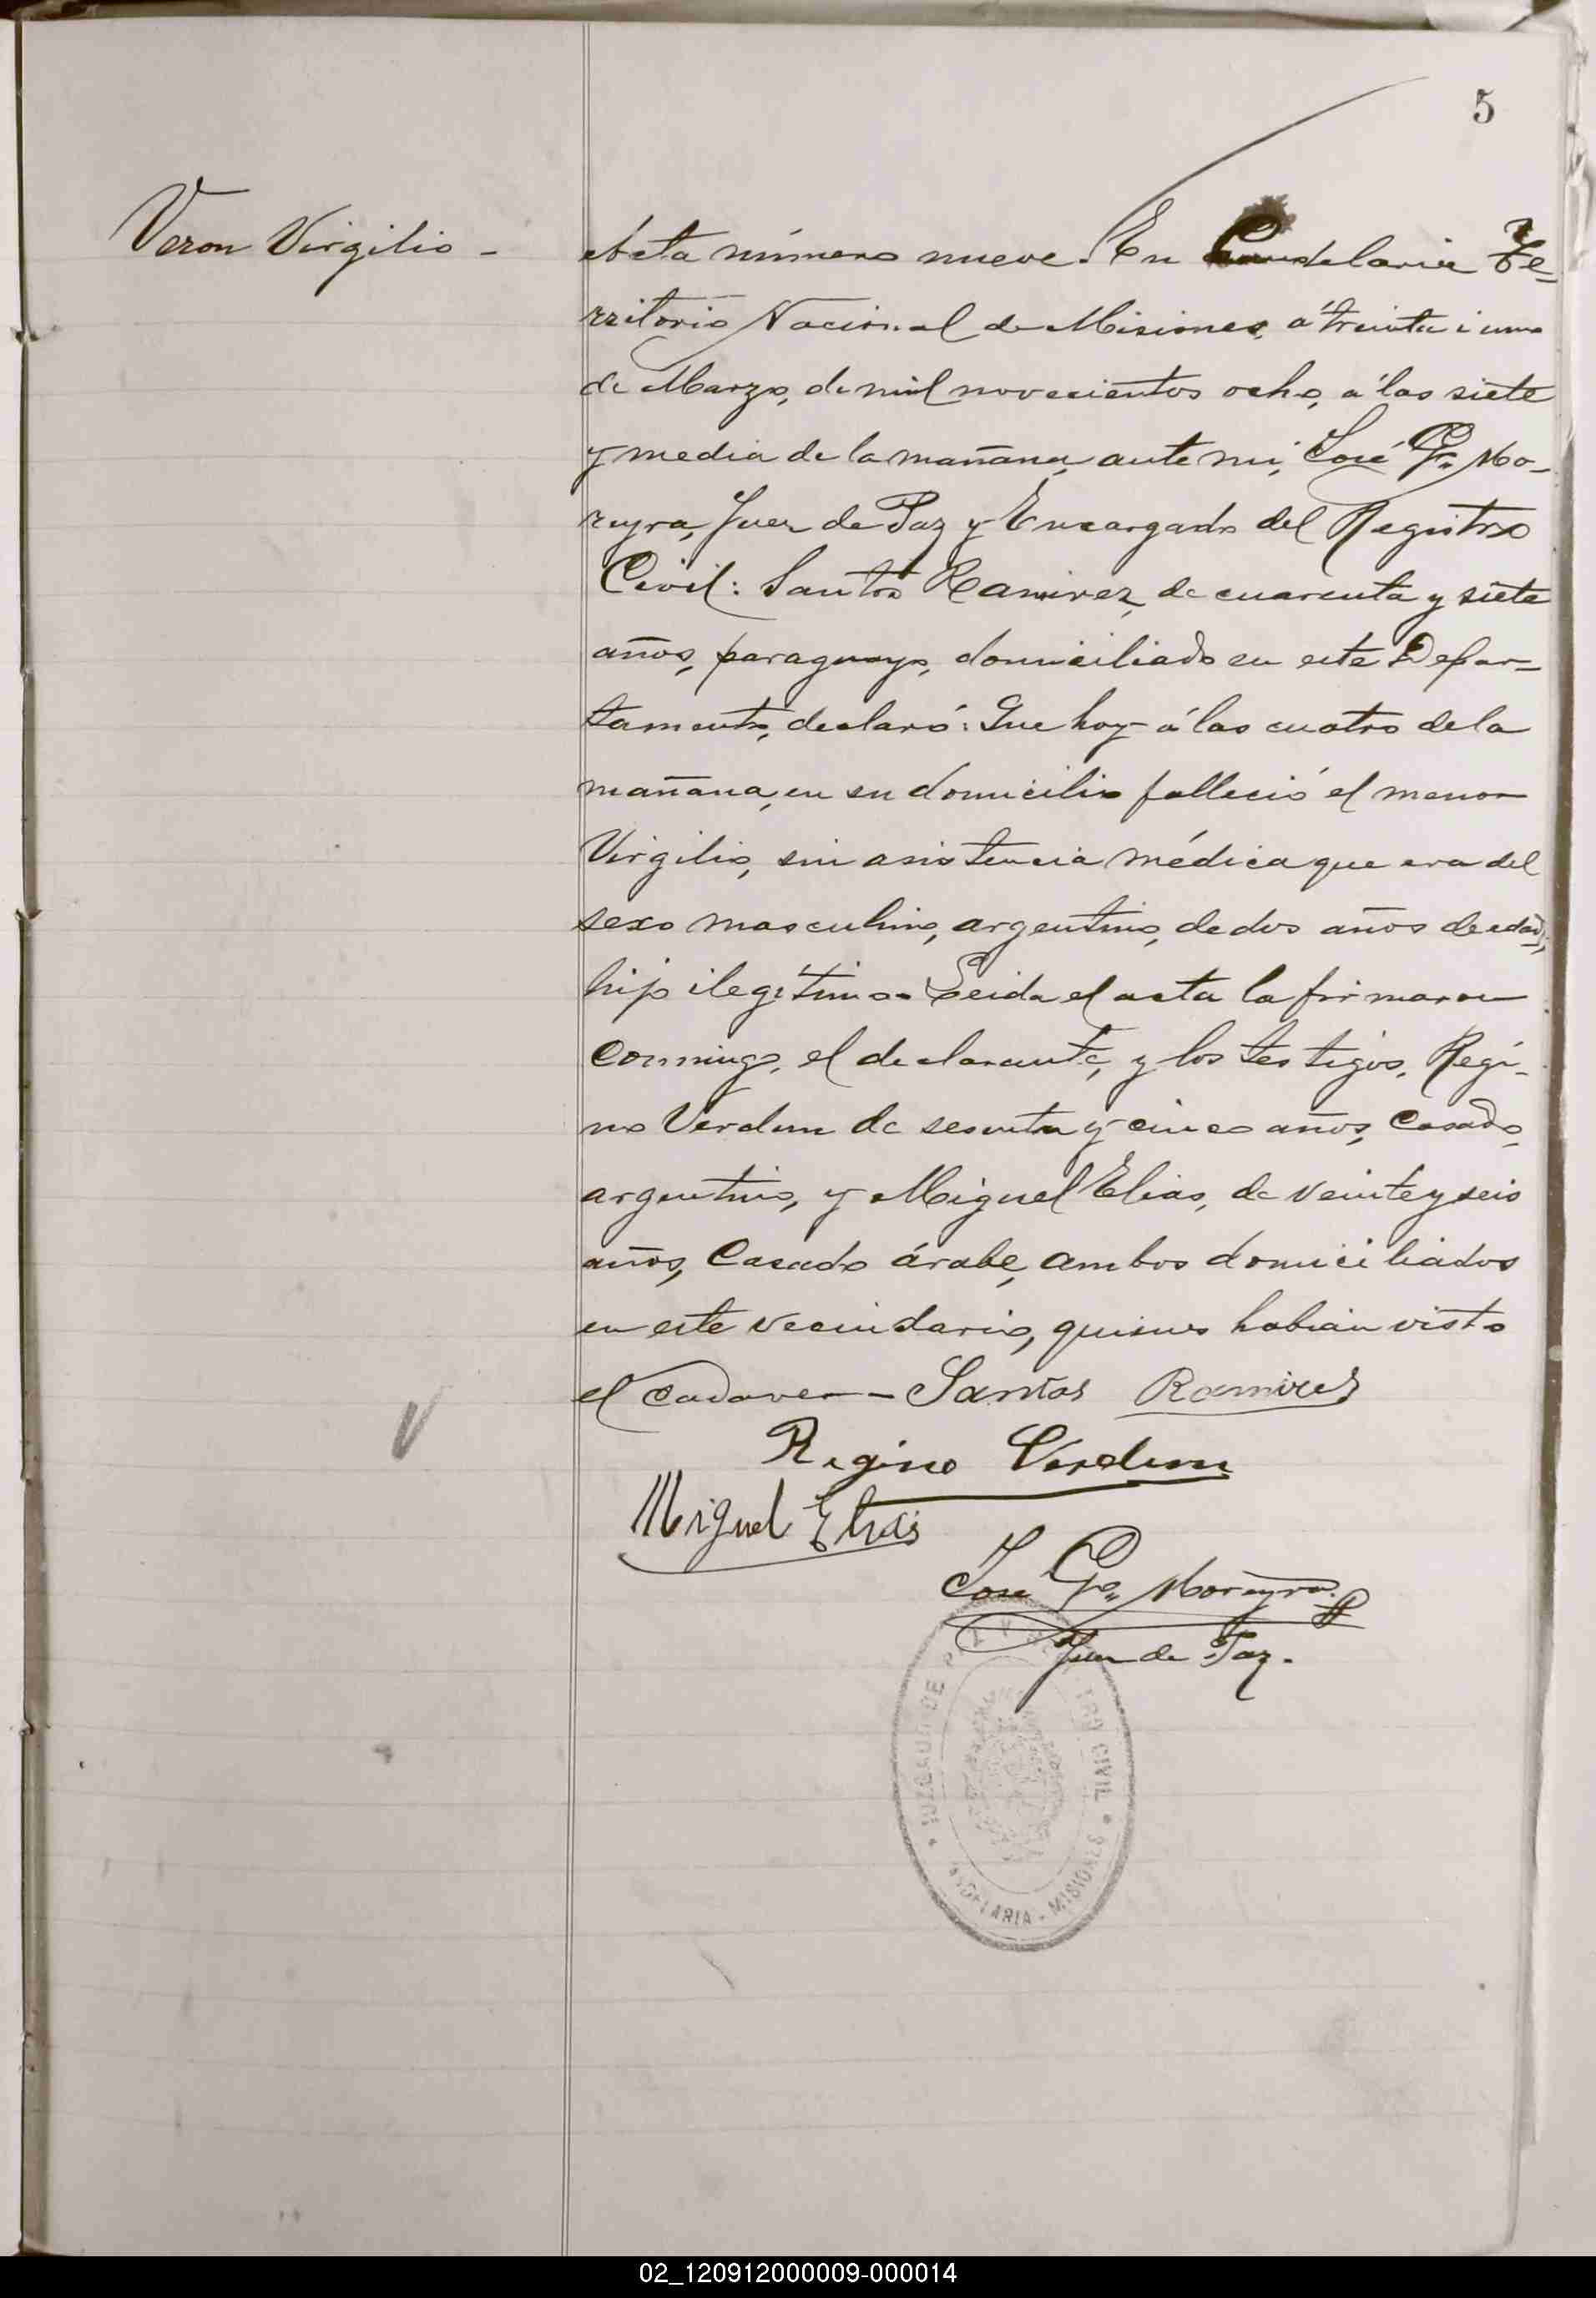 5
Veron Virgilio -
Acta número nueve. En Candelaria Te-
rritorio Nacional de Misiones, á treinta i uno
de Marzo, de mil novecientos ocho, á las siete
y media de la mañana, ante mi, José Gr. Mo-
reyra, Juez de Paz y Encargado del Registro
Civil: Santos Ramirez, de cuarenta y siete
años, paraguayo, domiciliado en este Depar-
tamento, declaró: Que hoy á las cuatro de la
mañana, en su domicilio falleció el menor
Virgilio, sin asistencia médica que era del
sexo masculino, argentino, de dos años de edad,
hijo ilegítimo. Leida el acta la firmaron
conmigo, el declarante, y los testigos, Regi-
no Verdun de sesenta y cinco años, Casado,
argentino, y Miguel Elias, de veinte y seis
años, Casado árabe, ambos domiciliados
en este vecindario, quienes habian visto
el cadaver - Santos Ramires
Regino Verdun
Miguel Elias
José Gr. Moreyra
Juez de Paz.
JUZGADO DE PAZ Y CIVIL
CANDELARIA - MISIONES
02_120912000009-000014